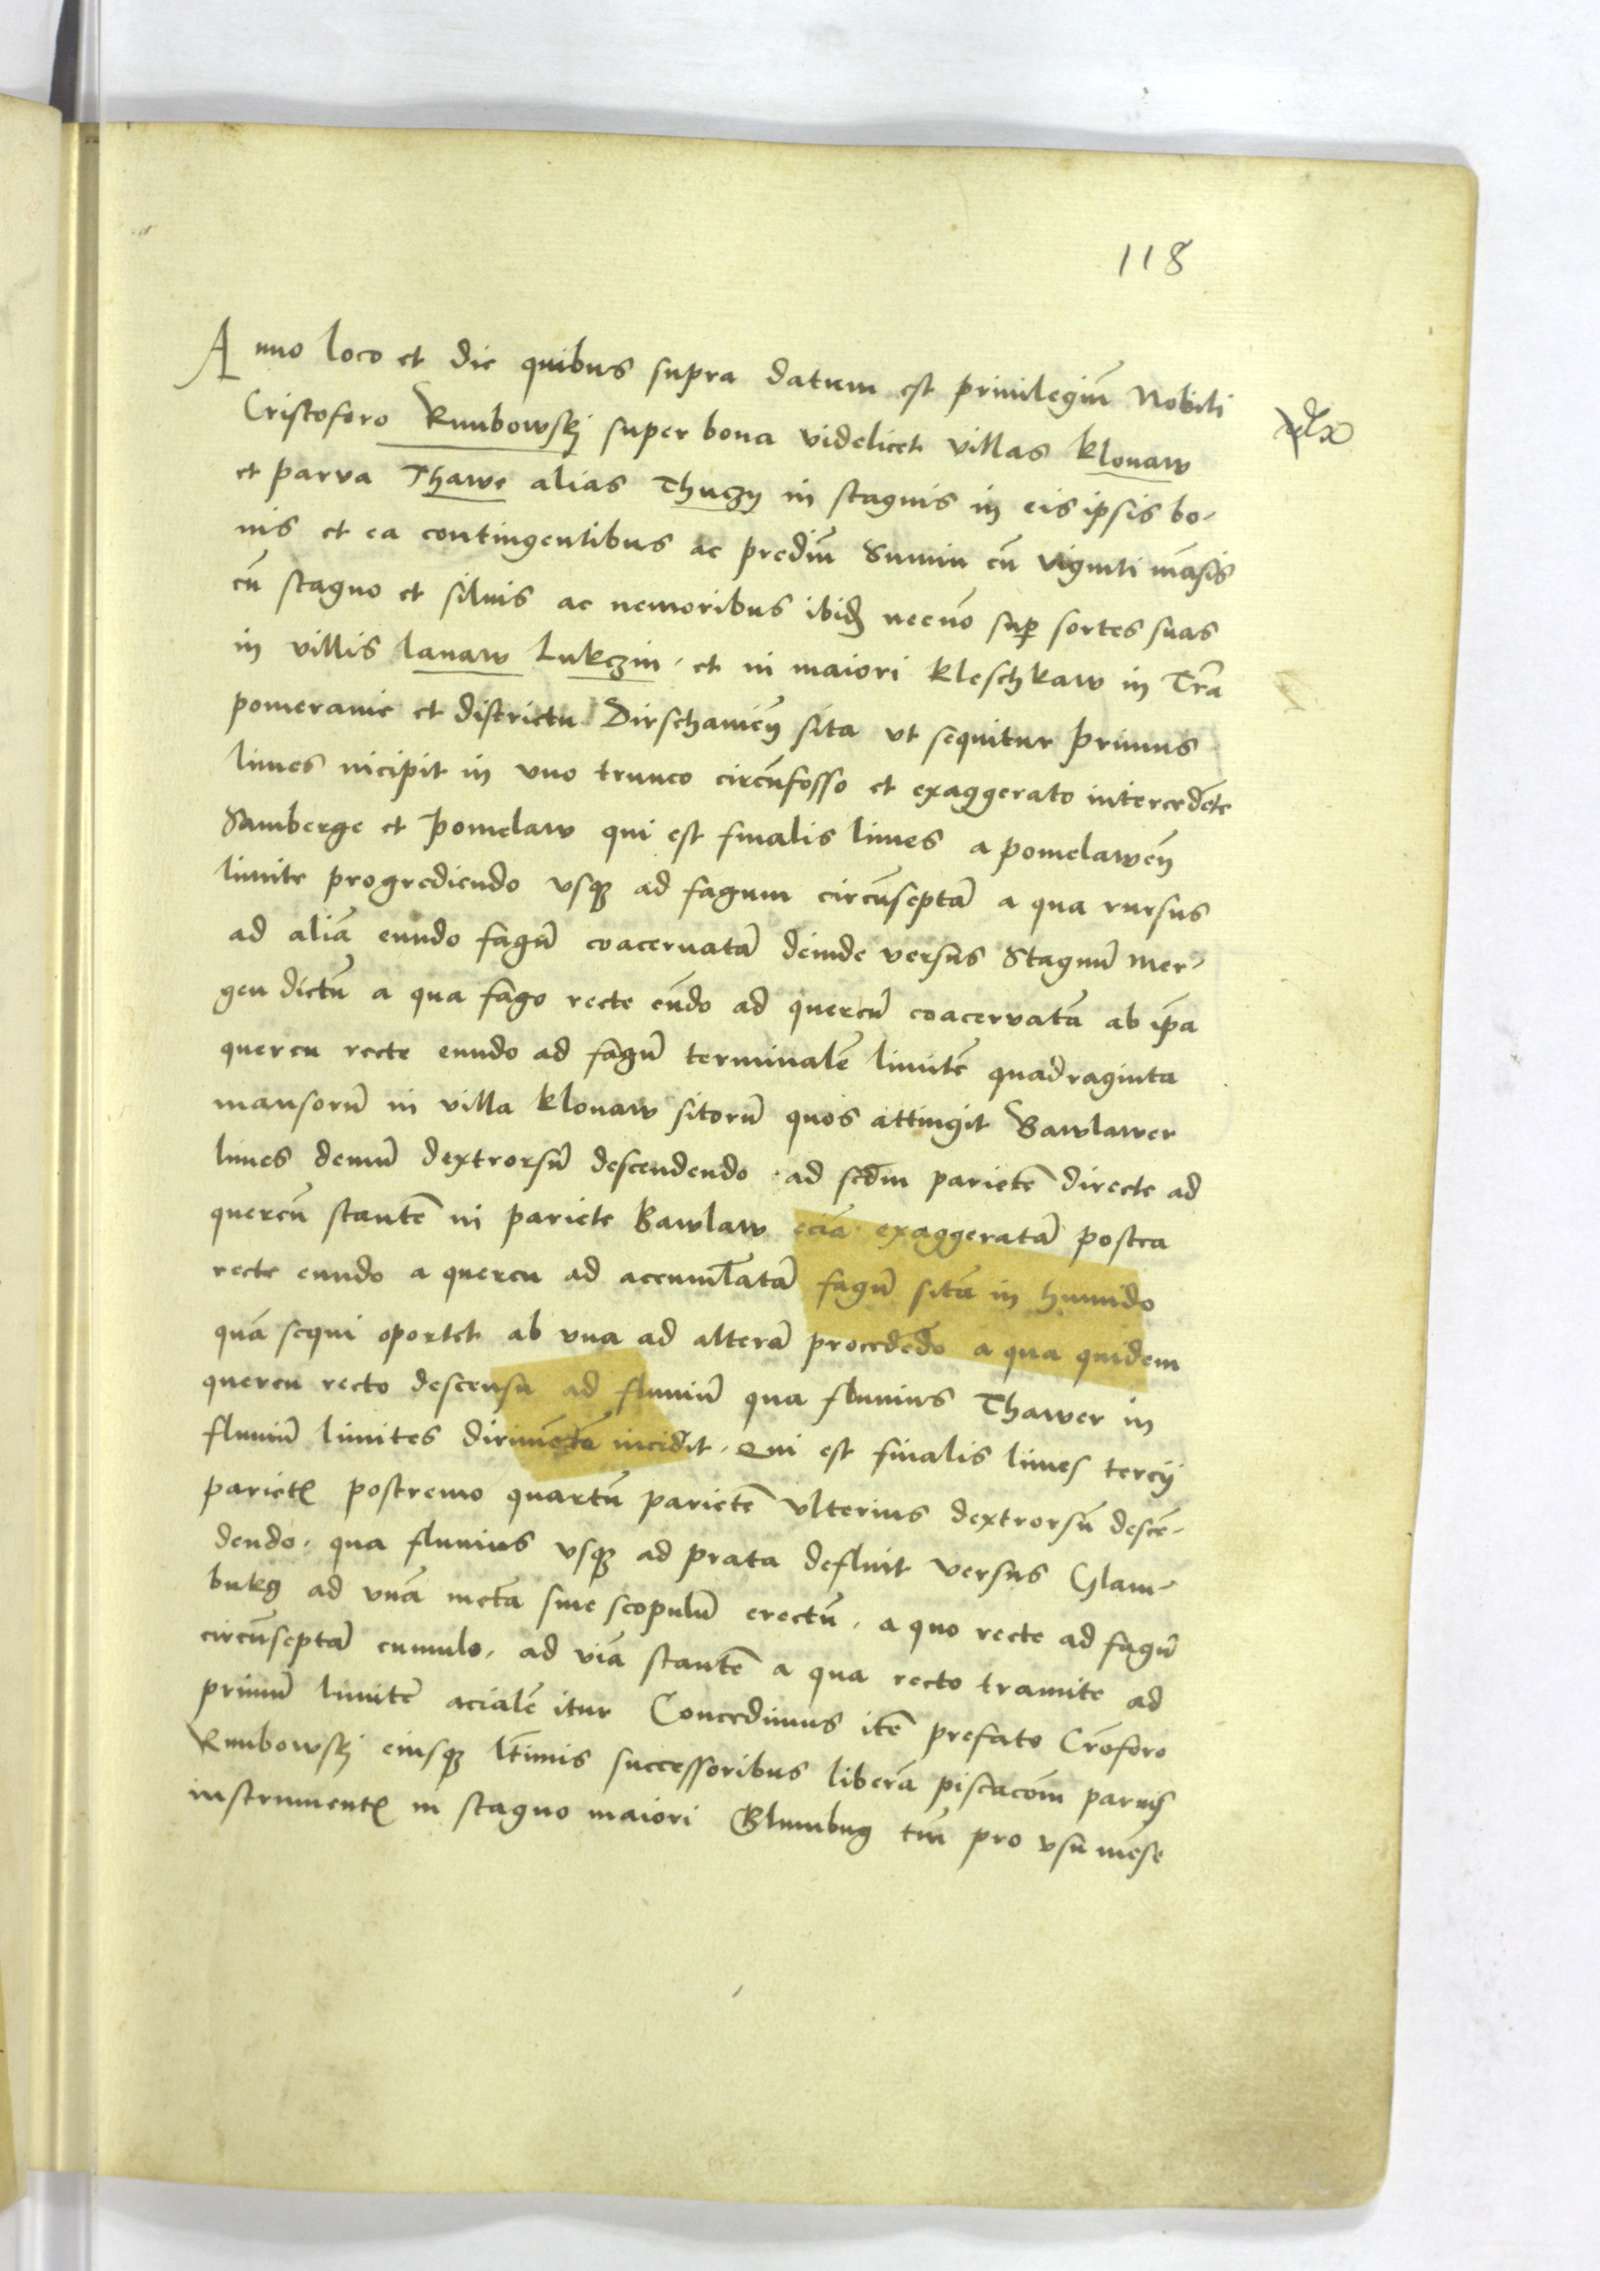 118
Anno loco et die quibus supra datum est priuilegiū Nobili
Cristoforo Rumbowskj super bona videlicet villas klonaw
et parva Thawe alias Thuczÿ in stagnis in eis ipsis bo-
nis et ea contingentibus ac prediū Sumin cū viginti māsis
cū stagno et siluis ac nemoribus ibidꝫ necnō suꝑ sortes suas
in villis lanaw Lukczin. et in maiori kleschkaw in Trā
pomeranie et districtu Dirschauieñ sita vt sequitur Primus
limes incipit in vno trunco circūfosso et exaggerato intercedēte
Samberge et Pomelaw qui est finalis limes a pomelaweñ
limite progrediendo vsqꝫ ad fagum circūseptā a qua rursus
ad aliā eundo fagū coaceruatā deinde versus Stagnū Mer-
gen dictū a qua fago recte eūdo ad quercū coacervatā ab ip̄a
quercu recte eundo ad fagū terminalē limitē quadraginta
mansorū in villa klonaw sitorū quos attingit Bawlawer
limes demū dextrorsū descendendo. ad scd̄m parietē directe ad
quercū stantē in pariete Bawlaw eciā exaggeratā postea
recte eundo a quercu ad accumulatā fagū sitā in humido
quā sequi oportet ab vna ad alterā procedēdo a qua quidem
quercu recto descensu ad fluuiū qua fluuius Thawer in
fluuiū limites dirimētē incidit. Qui est finalis limes tercij
parietꝭ postremo quartū parietē vlterius dextrorsū descē-
dendo. qua fluuius vsqꝫ ad prata defluit versus Glam-
bukg ad vnā metā siue scopulū erectū. a quo recte ad fagū
circūseptā cumulo. ad viā stantē a qua recto tramite ad
primū limitē acialē itur Concedimus itē prefato Crōforo
Rumbowskj eiusqꝫ lt̄imis successoribus liberā piscacōm paruis
instrumentꝭ in stagno maiori Glumbug tm̄ pro vsu mēse